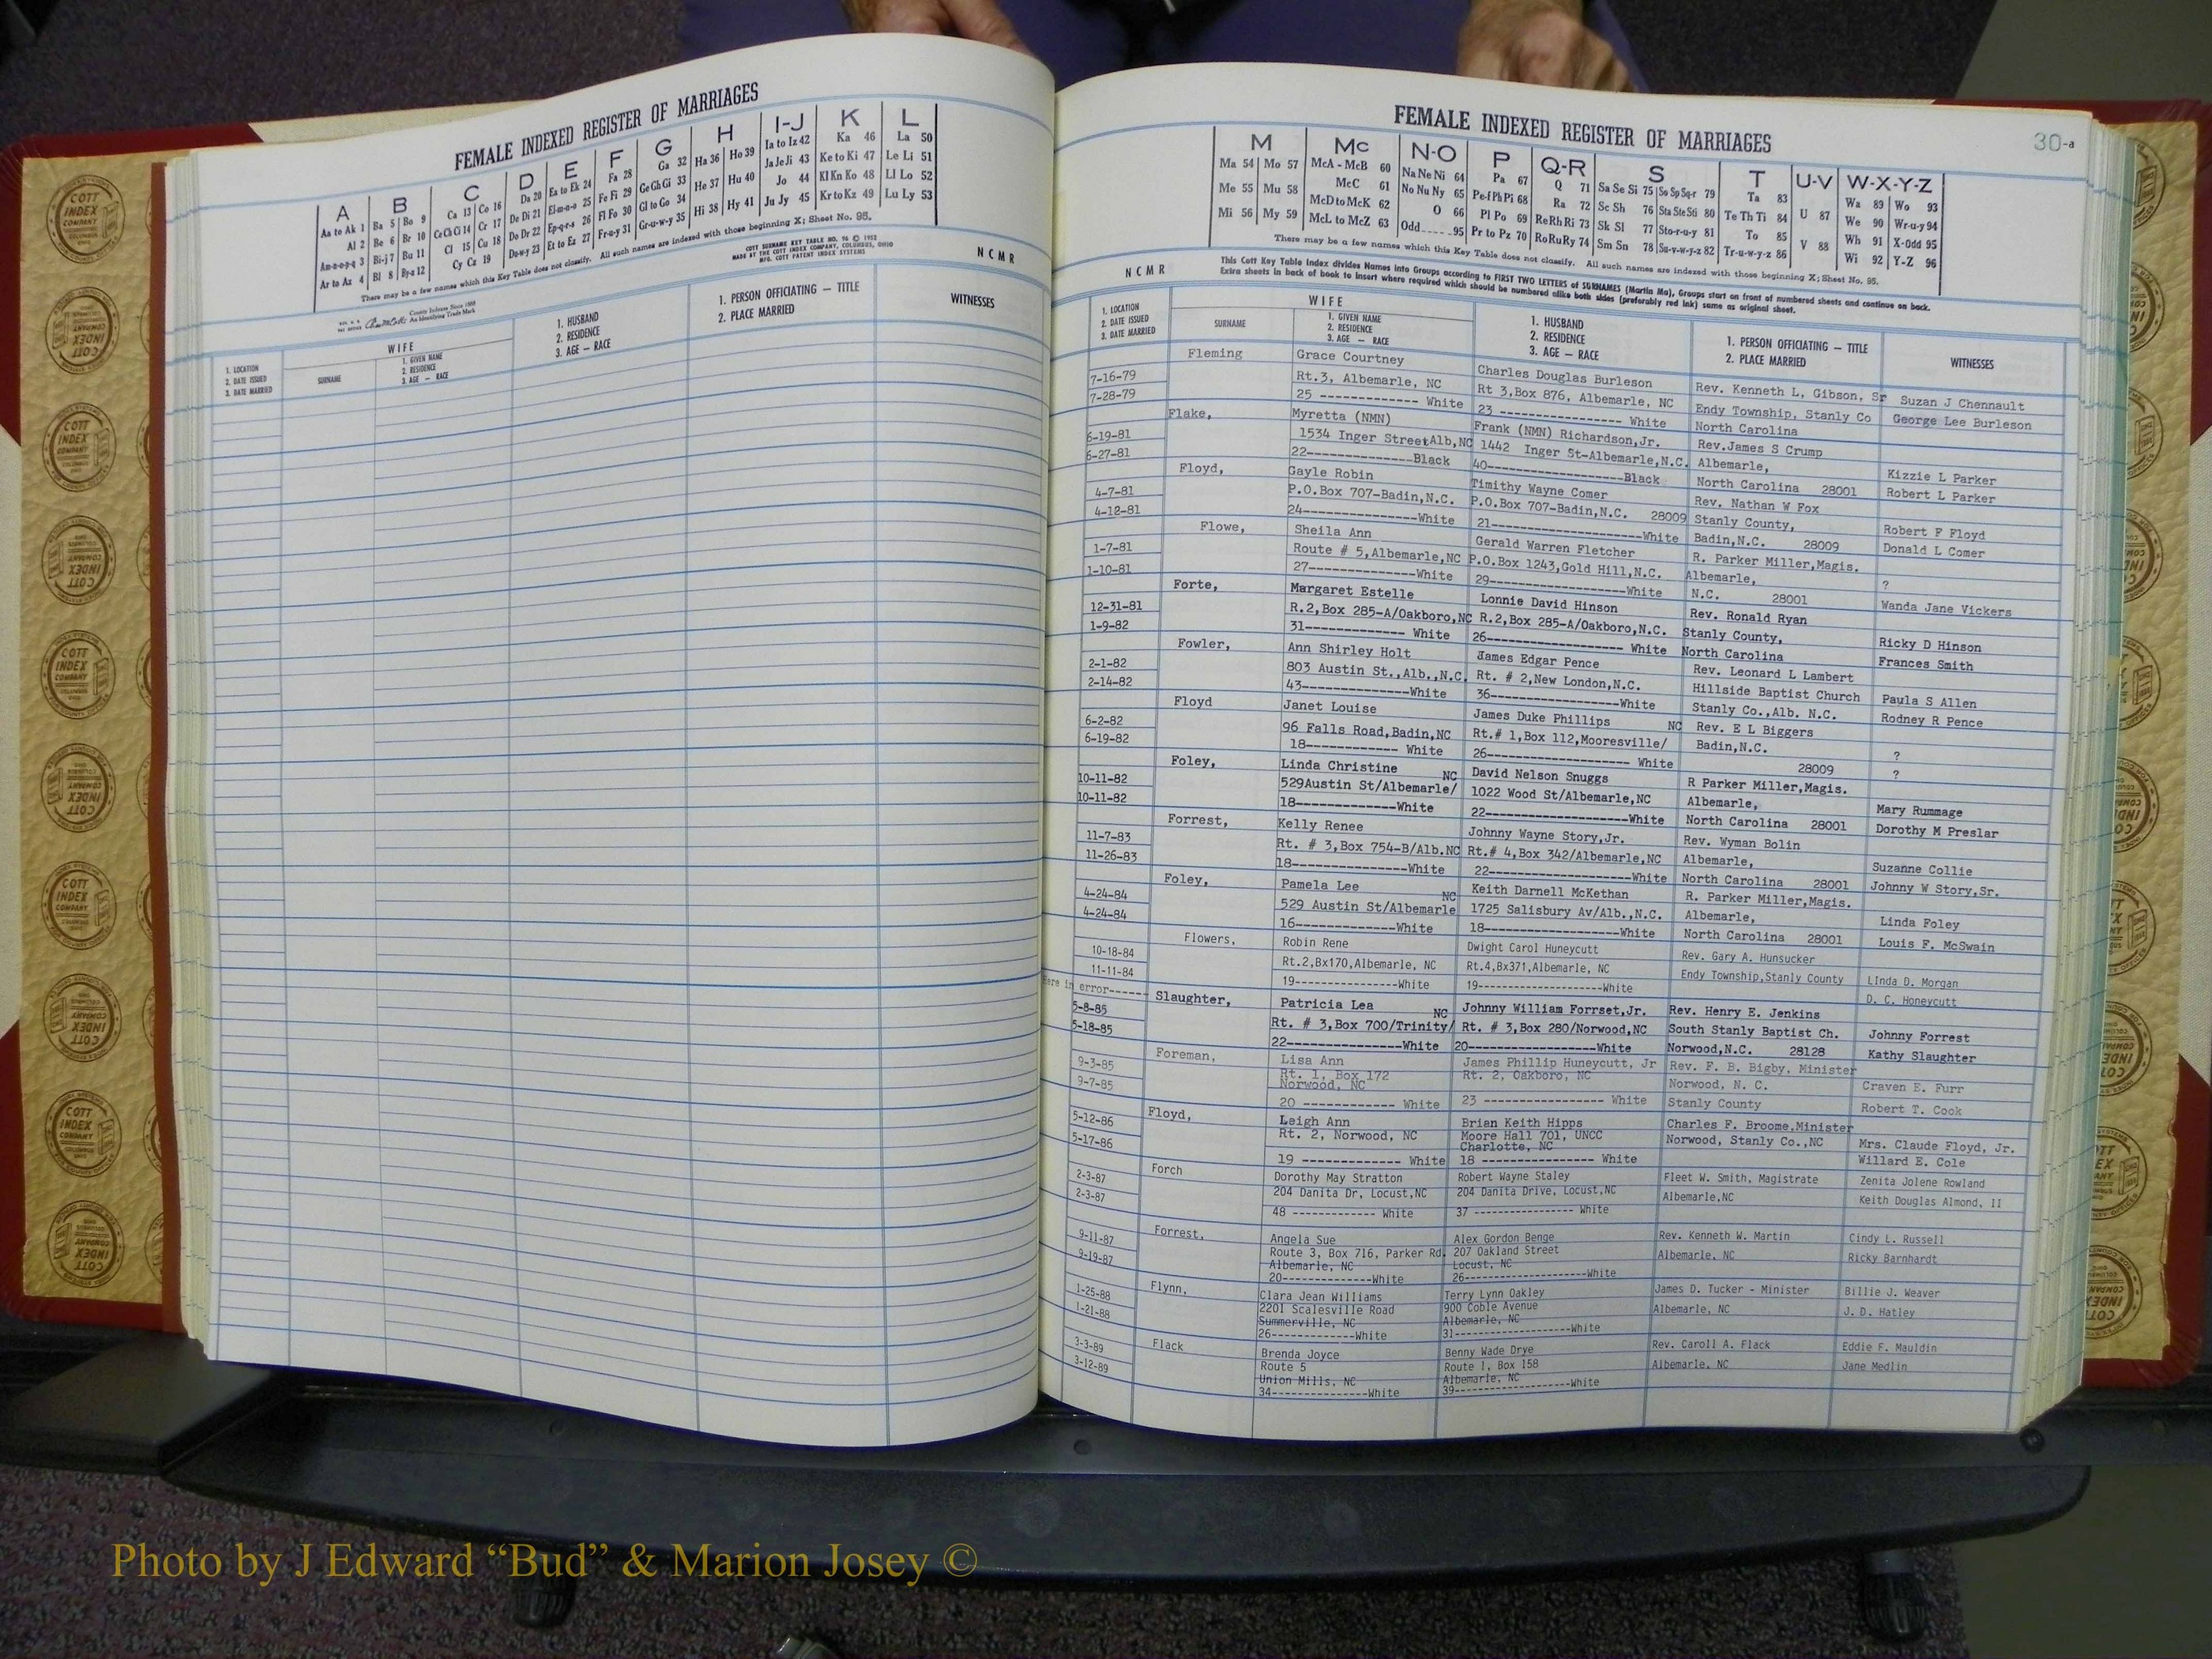 FEMALE INDEXED REGISTER OF MARRIAGES
A B C D E F G H I-J K L
Aa to Ak 1 Ba 5 Bo 9 Ca 13 Co 16 Da 20 Ea to Ek 24 Fa 28 Ga 32 Ha 36 Ho 39 Ia to Iz 42 Ka 46 La 50
Al 2 Be 6 Br 10 Ce Ch Ci 14 Cr 17 De Di 21 El-m-n-o 25 Fe Fi 29 Ge Gh Gi 33 He 37 Hu 40 Ja Je Ji 43 Ke to Ki 47 Le Li 51
Am-n-o-p-q 3 Bi-j 7 Bu 11 Cl 15 Cu 18 Do Dr 22 Ep-q-r-s 26 Fl Fo 30 Gl to Go 34 Hi 38 Hy 41 Jo 44 Kl Kn Ko 48 Ll Lo 52
Ar to Az 4 Bl 8 By-z 12 Cy Cz 19 Du-w-y 23 Et to Ez 27 Fr-u-y 31 Gr-u-w-y 35 Ju Jy 45 Kr to Kz 49 Lu Ly 53
There may be a few names which this Key Table does not classify. All such names are indexed with those beginning X; Sheet No. 95.
County Indexes Since 1888
An Identifying Trade Mark
COTT SURNAME KEY TABLE NO. 96 © 1952
MADE BY THE COTT INDEX COMPANY, COLUMBUS, OHIO
MFG. COTT PATENT INDEX SYSTEMS
NCMR
1. LOCATION
2. DATE ISSUED
3. DATE MARRIED
WIFE
SURNAME
1. GIVEN NAME
2. RESIDENCE
3. AGE — RACE
1. HUSBAND
2. RESIDENCE
3. AGE — RACE
1. PERSON OFFICIATING — TITLE
2. PLACE MARRIED
WITNESSES
FEMALE INDEXED REGISTER OF MARRIAGES
30-a
M Mc N-O P Q-R S T U-V W-X-Y-Z
Ma 54 Mo 57 McA - McB 60 Na Ne Ni 64 Pa 67 Q 71 Sa Se Si 75 So Sp Sq-r 79 Ta 83 Wa 89 Wo 93
Me 55 Mu 58 McC 61 No Nu Ny 65 Pe-f Ph Pi 68 Ra 72 Sc Sh 76 Sta Ste Sti 80 Te Th Ti 84 U 87 We 90 Wr-u-y 94
McD to McK 62 O 66 Pl Po 69 Re Rh Ri 73 Sk Sl 77 Sto-r-u-y 81 To 85 Wh 91 X-Odd 95
Mi 56 My 59 McL to McZ 63 Odd 95 Pr to Pz 70 Ro Ru Ry 74 Sm Sn 78 Su-v-w-y-z 82 Tr-u-w-y-z 86 V 88 Wi 92 Y-Z 96
There may be a few names which this Key Table does not classify. All such names are indexed with those beginning X; Sheet No. 95.
This Cott Key Table Index divides Names into Groups according to FIRST TWO LETTERS of SURNAMES (Martin Ma), Groups start on front of numbered sheets and continue on back.
Extra sheets in back of book to insert where required which should be numbered alike both sides (preferably red ink) same as original sheet.
NCMR
1. LOCATION
2. DATE ISSUED
3. DATE MARRIED
WIFE
SURNAME
1. GIVEN NAME
2. RESIDENCE
3. AGE — RACE
1. HUSBAND
2. RESIDENCE
3. AGE — RACE
1. PERSON OFFICIATING — TITLE
2. PLACE MARRIED
WITNESSES
Fleming Grace Courtney Charles Douglas Burleson Rev. Kenneth L, Gibson, Sr Suzan J Chennault
7-16-79 Rt.3, Albemarle, NC Rt 3,Box 876, Albemarle, NC Endy Township, Stanly Co George Lee Burleson
7-28-79 25 ------------- White 23 ---------------- White North Carolina
Flake, Myretta (NMN) Frank (NMN) Richardson,Jr. Rev.James S Crump
6-19-81 1534 Inger StreetAlb,NC 1442 Inger St-Albemarle,N.C. Albemarle, Kizzie L Parker
6-27-81 22--------------Black 40------------------Black North Carolina 28001 Robert L Parker
Floyd, Gayle Robin Timithy Wayne Comer Rev. Nathan W Fox
4-7-81 P.O.Box 707-Badin,N.C. P.O.Box 707-Badin,N.C. 28009 Stanly County, Robert F Floyd
4-12-81 24---------------White 21--------------------White Badin,N.C. 28009 Donald L Comer
Flowe, Sheila Ann Gerald Warren Fletcher R. Parker Miller,Magis.
1-7-81 Route # 5,Albemarle,NC P.O.Box 1243,Gold Hill,N.C. Albemarle, ?
1-10-81 27--------------White 29------------------White N.C. 28001 Wanda Jane Vickers
Forte, Margaret Estelle Lonnie David Hinson Rev. Ronald Ryan
12-31-81 R.2,Box 285-A/Oakboro,NC R.2,Box 285-A/Oakboro,N.C. Stanly County, Ricky D Hinson
1-9-82 31------------- White 26------------------ White North Carolina Frances Smith
Fowler, Ann Shirley Holt James Edgar Pence Rev. Leonard L Lambert
2-1-82 803 Austin St.,Alb.,N.C. Rt. # 2,New London,N.C. Hillside Baptist Church Paula S Allen
2-14-82 43--------------White 36-----------------White Stanly Co.,Alb. N.C. Rodney R Pence
Floyd Janet Louise James Duke Phillips NC Rev. E L Biggers
6-2-82 96 Falls Road,Badin,NC Rt.# 1,Box 112,Mooresville/ Badin,N.C. ?
6-19-82 18------------ White 26------------------ White 28009 ?
Foley, Linda Christine NC David Nelson Snuggs R Parker Miller,Magis.
10-11-82 529Austin St/Albemarle/ 1022 Wood St/Albemarle,NC Albemarle, Mary Rummage
10-11-82 18-------------White 22------------------White North Carolina 28001 Dorothy M Preslar
Forrest, Kelly Renee Johnny Wayne Story,Jr. Rev. Wyman Bolin
11-7-83 Rt. # 3,Box 754-B/Alb.NC Rt.# 4,Box 342/Albemarle,NC Albemarle, Suzanne Collie
11-26-83 18---------------White 22------------------White North Carolina 28001 Johnny W Story,Sr.
Foley, Pamela Lee NC Keith Darnell McKethan R. Parker Miller,Magis.
4-24-84 529 Austin St/Albemarle 1725 Salisbury Av/Alb.,N.C. Albemarle, Linda Foley
4-24-84 16-------------White 18-----------------White North Carolina 28001 Louis F. McSwain
Flowers, Robin Rene Dwight Carol Huneycutt Rev. Gary A. Hunsucker
10-18-84 Rt.2,Bx170,Albemarle, NC Rt.4,Bx371,Albemarle, NC Endy Township,Stanly County Linda D. Morgan
11-11-84 19---------------White 19------------------White D. C. Honeycutt
Here in error------
Slaughter, Patricia Lea NC Johnny William Forrset,Jr. Rev. Henry E. Jenkins
5-8-85 Rt. # 3,Box 700/Trinity/ Rt. # 3,Box 280/Norwood,NC South Stanly Baptist Ch. Johnny Forrest
5-18-85 22----------------White 20------------------White Norwood,N.C. 28128 Kathy Slaughter
Foreman, Lisa Ann James Phillip Huneycutt, Jr Rev. F. B. Bigby, Minister
9-3-85 Rt. 1, Box 172 Rt. 2, Oakboro, NC Norwood, N. C. Craven E. Furr
Norwood, NC
9-7-85 20 ------------- White 23 ----------------- White Stanly County Robert T. Cook
Floyd, Leigh Ann Brian Keith Hipps Charles F. Broome,Minister
5-12-86 Rt. 2, Norwood, NC Moore Hall 701, UNCC Norwood, Stanly Co.,NC Mrs. Claude Floyd, Jr.
Charlotte, NC
5-17-86 19 -------------- White 18 ---------------- White Willard E. Cole
Forch Dorothy May Stratton Robert Wayne Staley Fleet W. Smith, Magistrate Zenita Jolene Rowland
2-3-87 204 Danita Dr, Locust,NC 204 Danita Drive, Locust,NC Albemarle,NC Keith Douglas Almond, II
2-3-87 48 -------------- White 37 ----------------- White
Forrest, Angela Sue Alex Gordon Benge Rev. Kenneth W. Martin Cindy L. Russell
9-11-87 Route 3, Box 716, Parker Rd. 207 Oakland Street Albemarle, NC Ricky Barnhardt
9-19-87 Albemarle, NC Locust, NC
20---------------White 26---------------------White
Flynn, Clara Jean Williams Terry Lynn Oakley James D. Tucker - Minister Billie J. Weaver
1-25-88 2201 Scalesville Road 900 Coble Avenue Albemarle, NC J. D. Hatley
1-21-88 Summerville, NC Albemarle, NC
26-------------White 31--------------------White
Flack Brenda Joyce Benny Wade Drye Rev. Caroll A. Flack Eddie F. Mauldin
3-3-89 Route 5 Route 1, Box 158 Albemarle, NC Jane Medlin
3-12-89 Union Mills, NC Albemarle, NC
34---------------White 39-------------------White
COTT INDEX COMPANY
Photo by J Edward “Bud” & Marion Josey ©